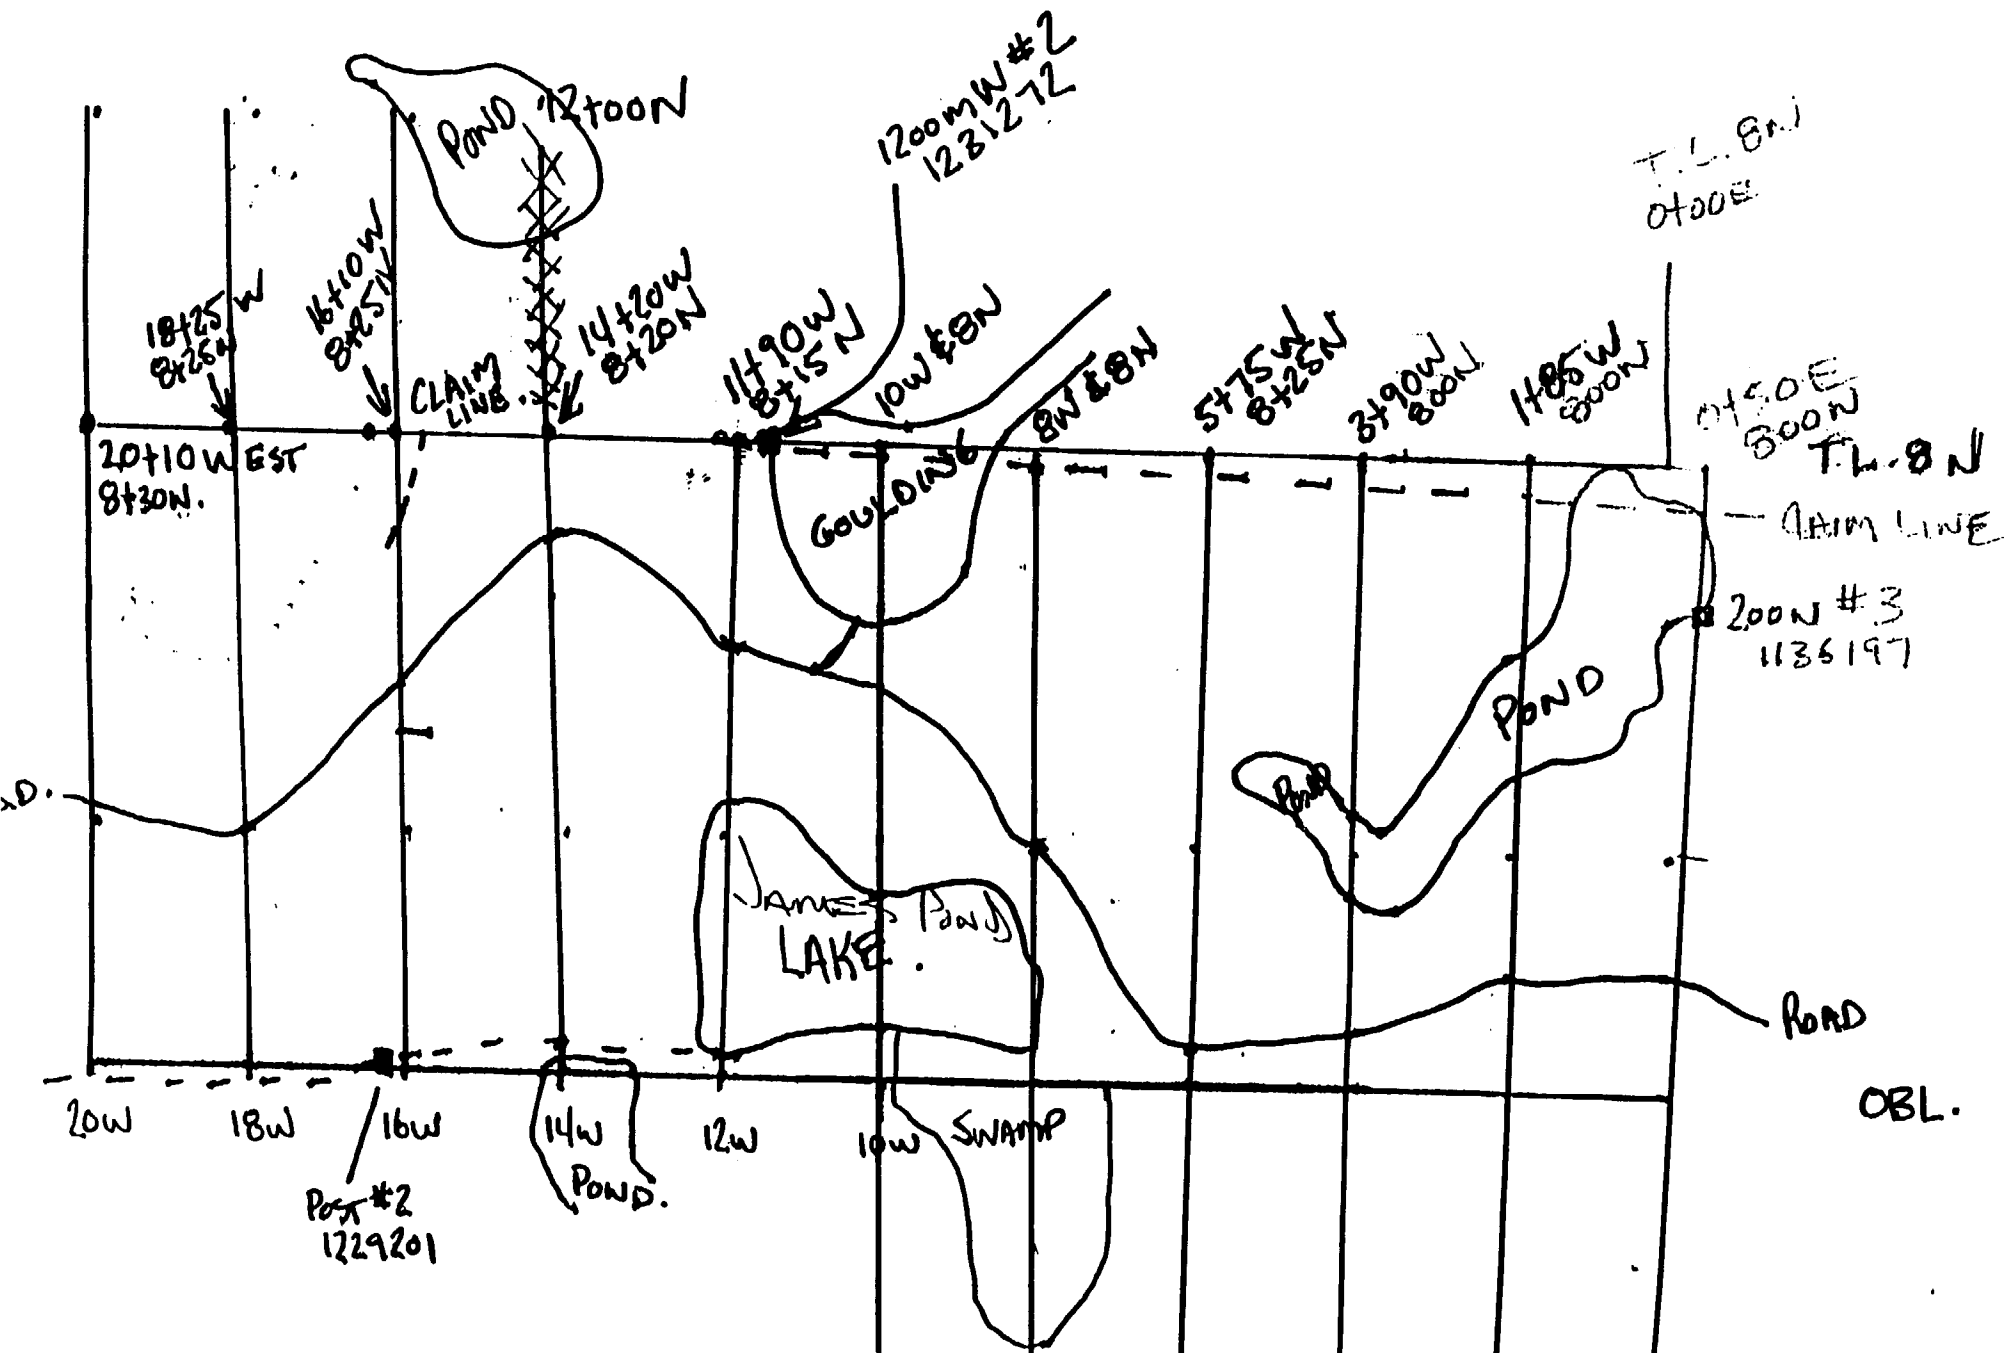 POND 12+00N
1200mW #2
1231272
T.L. 8N
0+00E
18+25W
8+25N
16+10W
8+25N
CLAIM
LINE.
14+20W
8+20N
11+90W
8+15N
10W & 8N
8W & 8N
5+75W
8+25N
3+90W
800N
1+85W
800N
0+50E
800N
T.L. 8N
20+10 WEST
8+30N.
GOULDING
CLAIM LINE
200N #3
1136197
POND
POND
D.
JAMES POND
LAKE.
ROAD
OBL.
20W
18W
16W
14W
12W
10W
SWAMP
POND.
POST #2
1229201